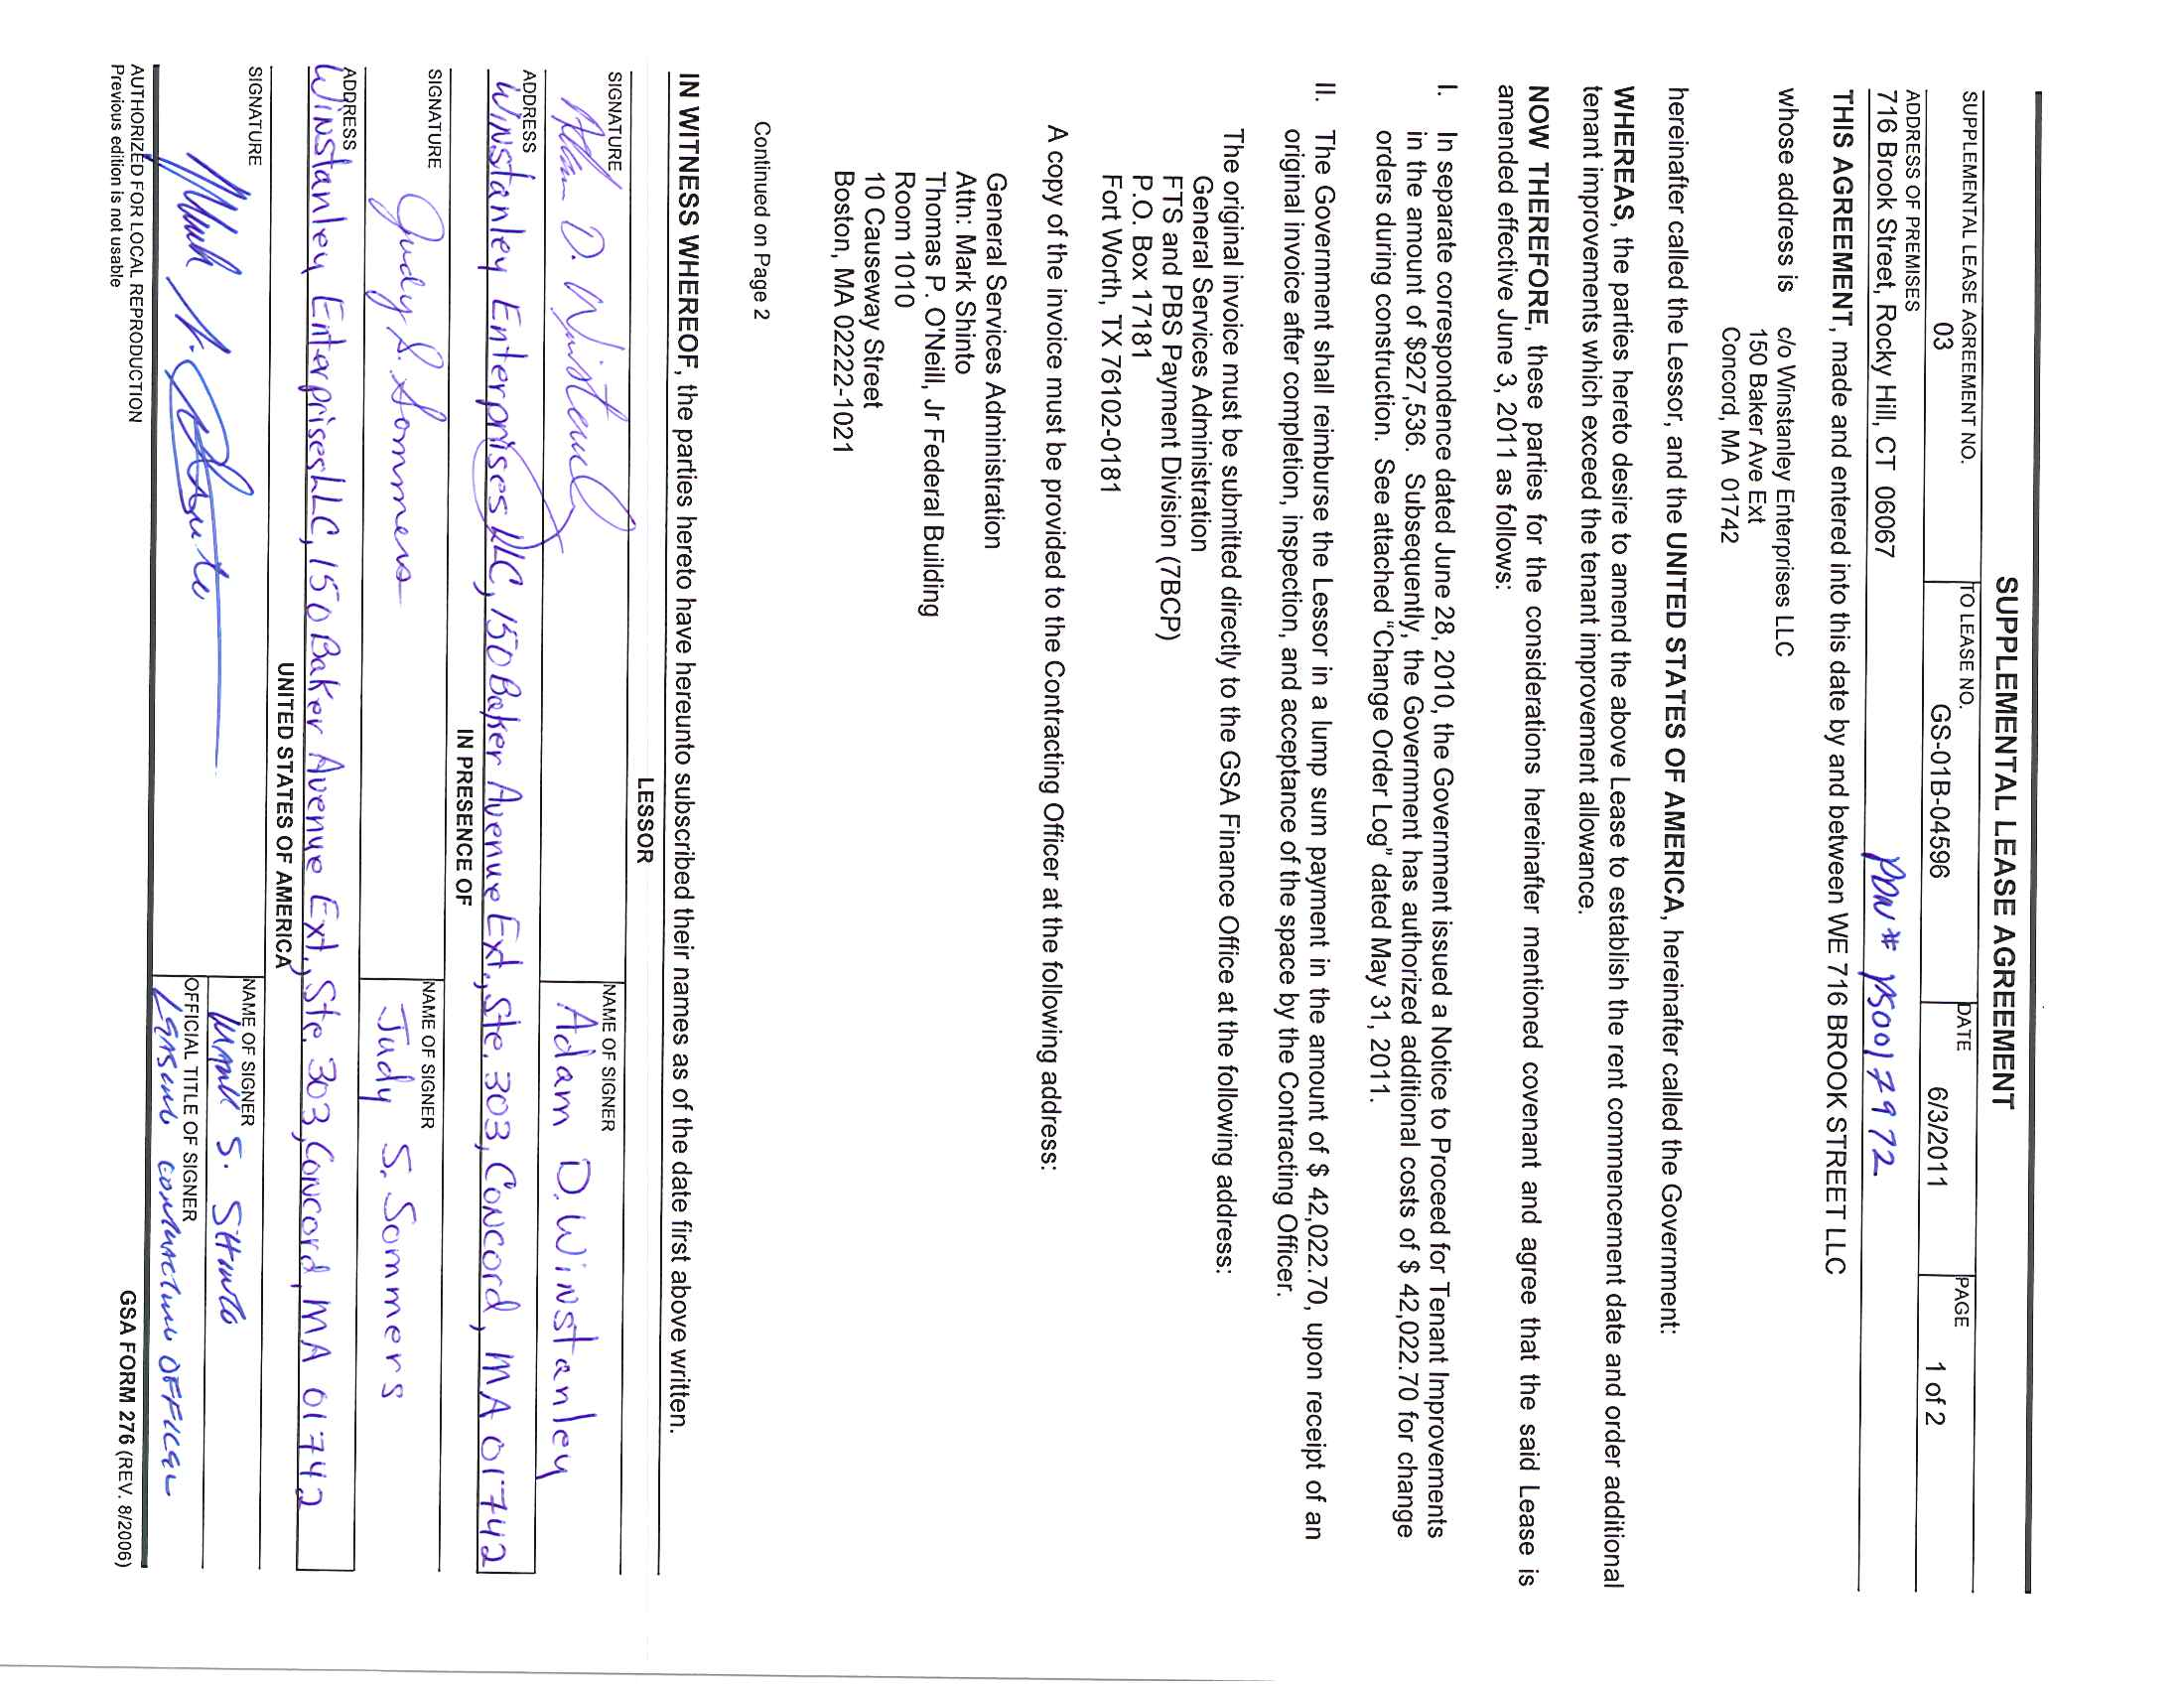 SUPPLEMENTAL LEASE AGREEMENT
SUPPLEMENTAL LEASE AGREEMENT NO.
03
TO LEASE NO.
GS-01B-04596
DATE
6/3/2011
PAGE
1 of 2
ADDRESS OF PREMISES
716 Brook Street, Rocky Hill, CT 06067
PDN # PS0017972
THIS AGREEMENT, made and entered into this date by and between WE 716 BROOK STREET LLC
whose address is c/o Winstanley Enterprises LLC
150 Baker Ave Ext
Concord, MA 01742
hereinafter called the Lessor, and the UNITED STATES OF AMERICA, hereinafter called the Government:
WHEREAS, the parties hereto desire to amend the above Lease to establish the rent commencement date and order additional
tenant improvements which exceed the tenant improvement allowance.
NOW THEREFORE, these parties for the considerations hereinafter mentioned covenant and agree that the said Lease is
amended effective June 3, 2011 as follows:
I. In separate correspondence dated June 28, 2010, the Government issued a Notice to Proceed for Tenant Improvements
in the amount of $927,536. Subsequently, the Government has authorized additional costs of $ 42,022.70 for change
orders during construction. See attached "Change Order Log" dated May 31, 2011.
II. The Government shall reimburse the Lessor in a lump sum payment in the amount of $ 42,022.70, upon receipt of an
original invoice after completion, inspection, and acceptance of the space by the Contracting Officer.
The original invoice must be submitted directly to the GSA Finance Office at the following address:
General Services Administration
FTS and PBS Payment Division (7BCP)
P.O. Box 17181
Fort Worth, TX 76102-0181
A copy of the invoice must be provided to the Contracting Officer at the following address:
General Services Administration
Attn: Mark Shinto
Thomas P. O'Neill, Jr Federal Building
Room 1010
10 Causeway Street
Boston, MA 02222-1021
Continued on Page 2
IN WITNESS WHEREOF, the parties hereto have hereunto subscribed their names as of the date first above written.
LESSOR
SIGNATURE
Adam D. Winstanley
NAME OF SIGNER
Adam D. Winstanley
ADDRESS
Winstanley Enterprises LLC, 150 Baker Avenue Ext., Ste. 303, Concord, MA 01742
IN PRESENCE OF
SIGNATURE
Judy S. Sommers
NAME OF SIGNER
Judy S. Sommers
ADDRESS
Winstanley Enterprises LLC, 150 Baker Avenue Ext., Ste. 303, Concord, MA 01742
UNITED STATES OF AMERICA
SIGNATURE
NAME OF SIGNER
Mark S. Shinto
OFFICIAL TITLE OF SIGNER
Leasing Contracting Officer
AUTHORIZED FOR LOCAL REPRODUCTION
Previous edition is not usable
GSA FORM 276 (REV. 8/2006)